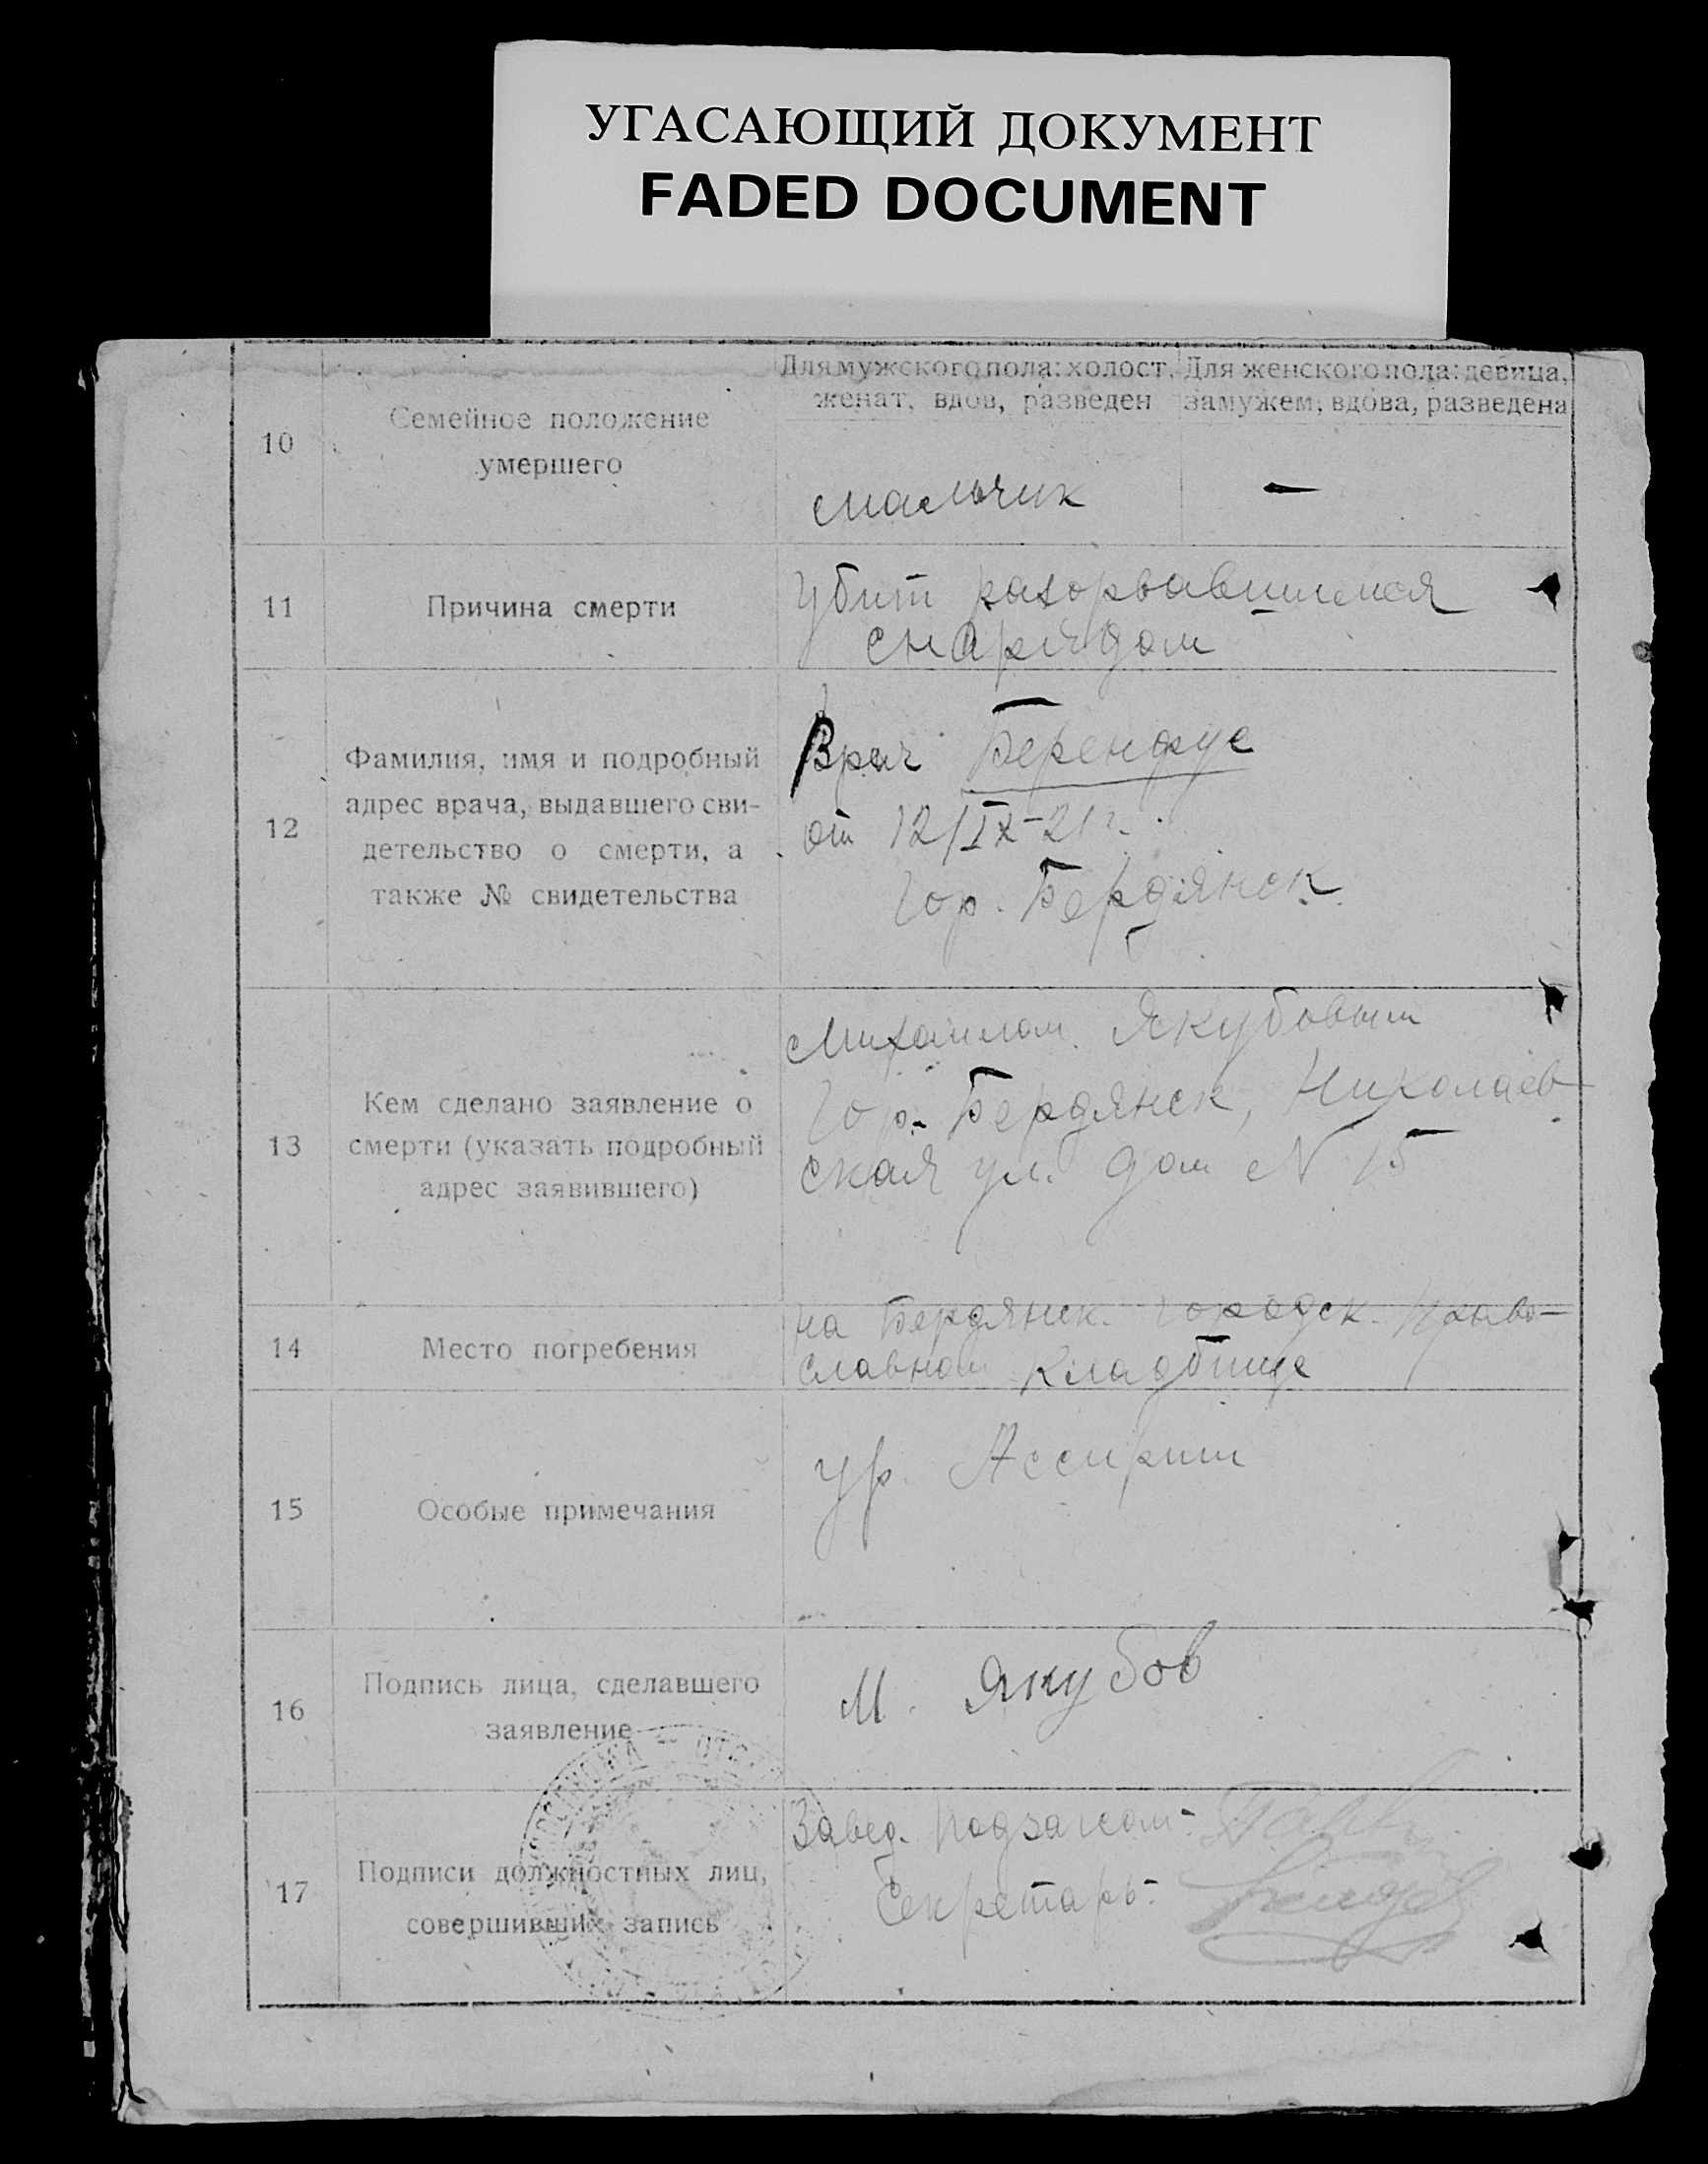 УГАСАЮЩИЙ ДОКУМЕНТ
FADED DOCUMENT
10
Семейное положение
умершего
Для мужского пола: холост,
женат, вдов, разведен
Для женского пола: девица,
замужем, вдова, разведена
мальчик
—
11
Причина смерти
Убит разорвавшимся
снарядом
12
Фамилия, имя и подробный
адрес врача, выдавшего сви-
детельство о смерти, а
также № свидетельства
Врач
от 12/IX-21 г.
Гор. Бердянск
13
Кем сделано заявление о
смерти (указать подробный
адрес заявившего)
Михаилом Якубовым
Гор. Бердянск, Николаев-
ская ул. дом N 15
14
Место погребения
на Бердянск. городск. Право-
славном кладбище
15
Особые примечания
ур. Ассирии
16
Подпись лица, сделавшего
заявление
М. Якубов
17
Подписи должностных лиц,
совершивших запись
Завед. подзагсом:
Секретарь: